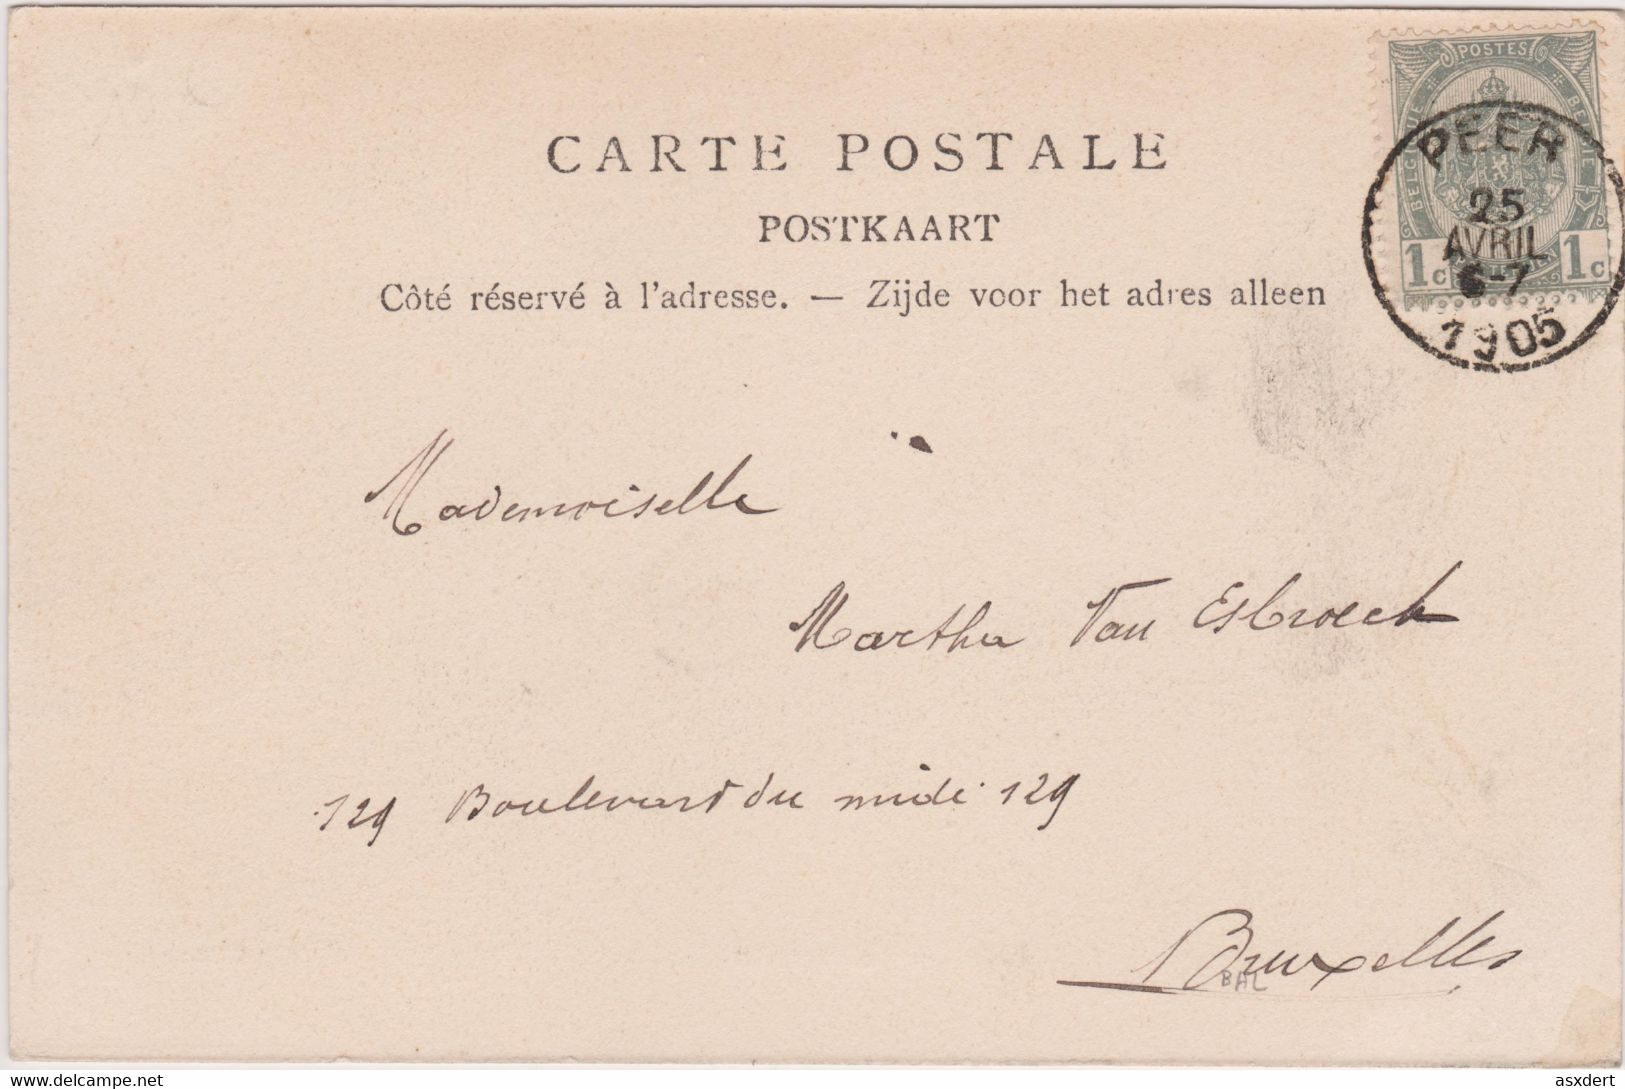 CARTE POSTALE
POSTKAART
Côté réservé à l'adresse. — Zijde voor het adres alleen
POSTES
BELGIQUE
BELGIE
1c
1c
PEER
25
AVRIL
6-7
1905
Mademoiselle
Martha Van Esbroeck
129 Boulevard du midi 129
Bruxelles
BAL
delcampe.net
asxdert